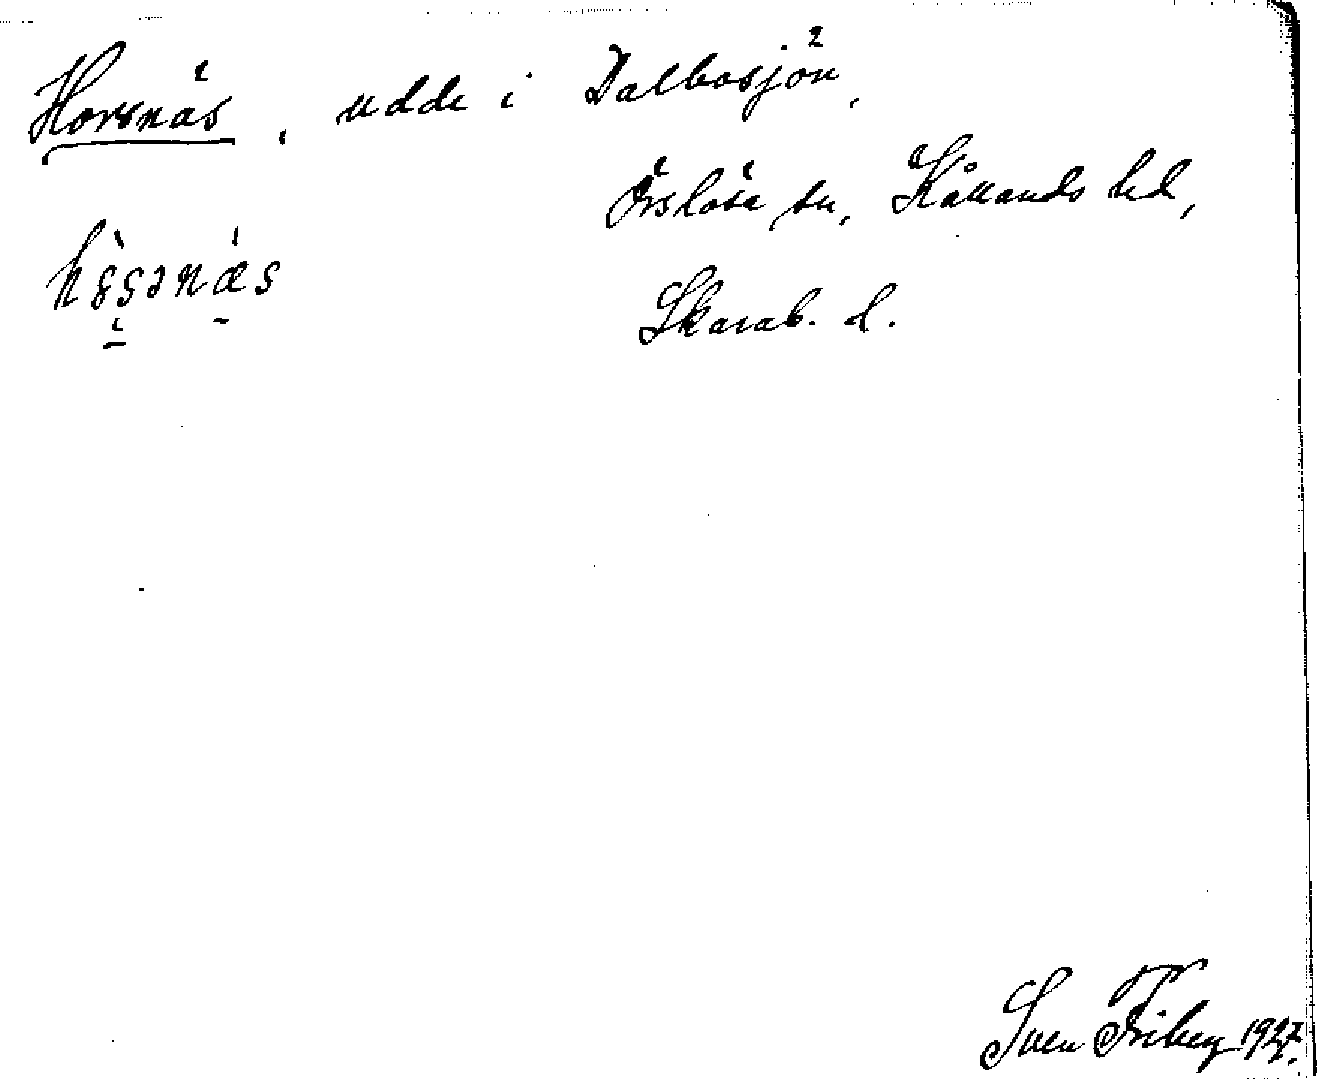 Horsnäs, udde i Dalbosjön,
Örslösa sn, Kållands hd,
Skarab. l.
Sven Friberg 1927.